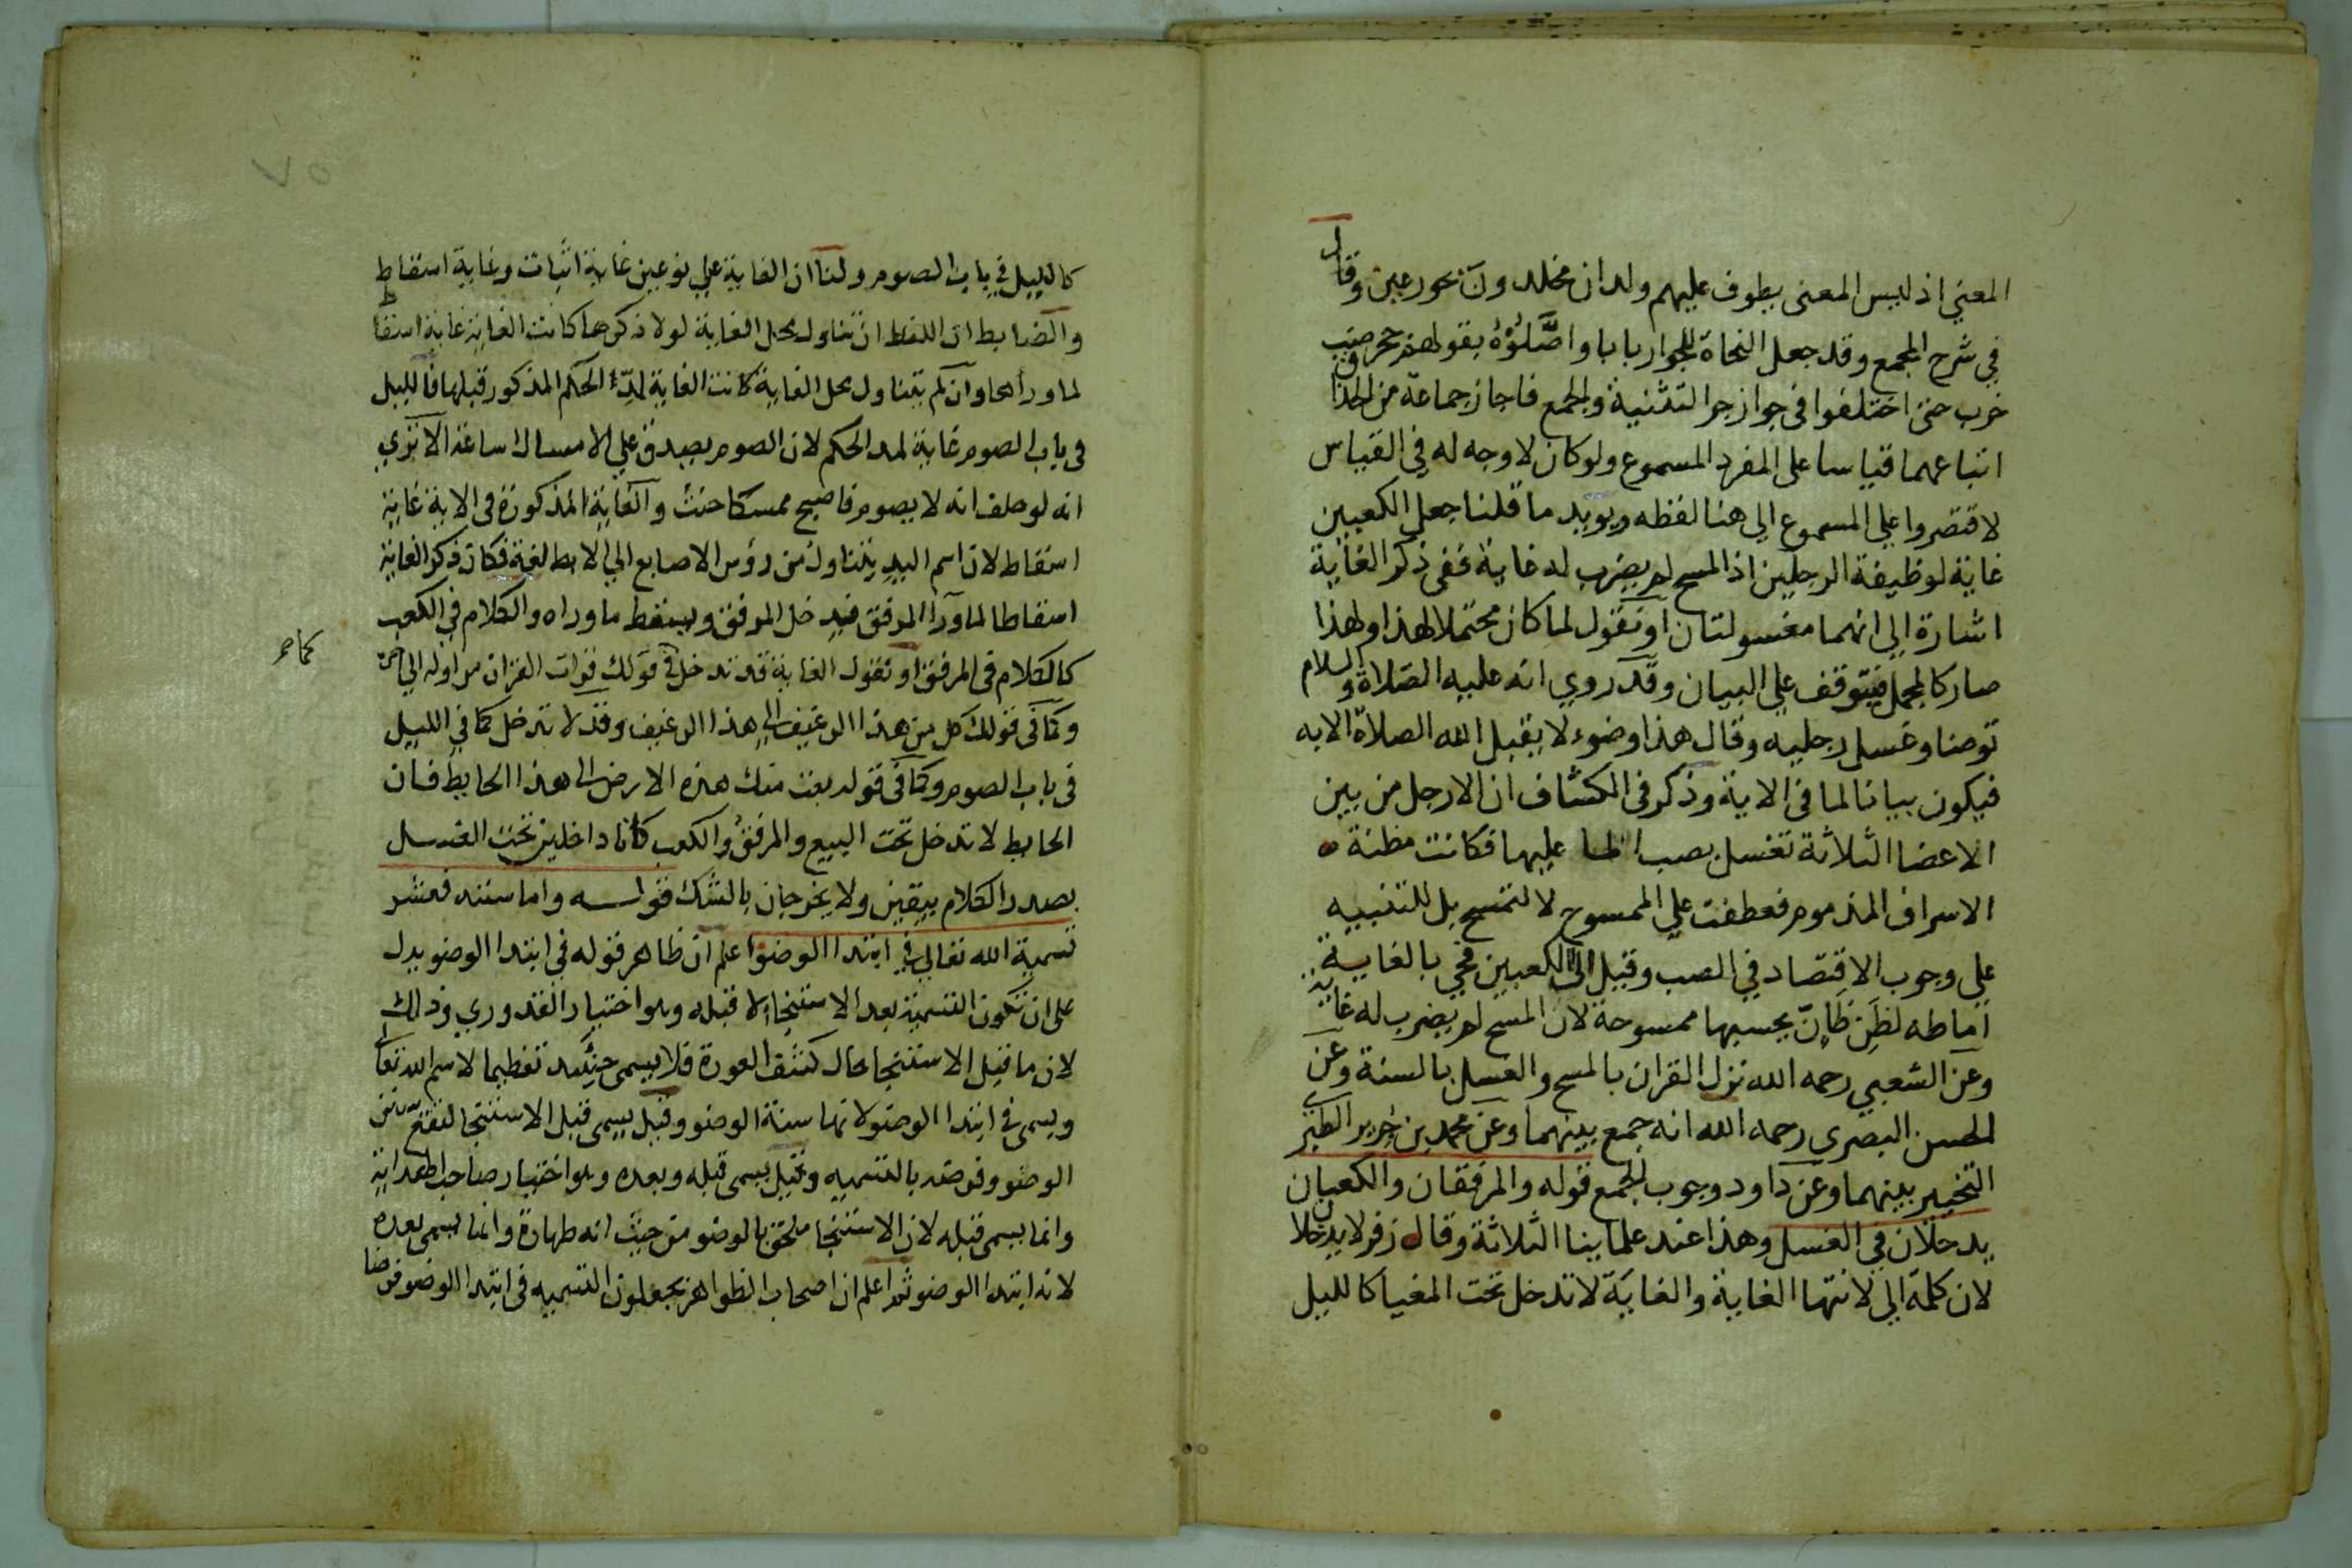 المعني اذ ليس المعنى يطوف عليهم ولدان مخلدون بحور عين وقال
في شرح المجمع وقد جعل النحاة للجوار بابا واصّلوُه بقولهم جحر ضب
خرب حتى اختلفوا فى جواز جر التثنية والجمع فاجاز جماعة من الحذاق
اتباعهما قياسا على المفرد المسموع ولو كان لا وجه له في القياس
لاقتصروا علي المسموع الى هنا لفظه ويويد ما قلنا جعل الكعبين
غاية لوظيفة الرجلين اذ المسح لم يضرب له غاية ففى ذكر الغاية
اشارة الى انهما مغسولتان او نقول لما كان محتملا لهذا ولهذا
صار كالمجمل فيتوقف علي البيان وقد روي انه عليه الصلاة والسلام
توضا وغسل رجليه وقال هذا وضوء لا يقبل الله الصلاة الا به
فيكون بيانا لما فى الاية وذكر فى الكشاف ان الارجل من بين
الاعضا الثلاثة تغسل بصب الما عليها فكانت مظنة
الاسراف المذموم فعطفت علي الممسوح لا لتمسح بل للتنبيه
علي وجوب الاقتصاد في الصب وقيل الى الكعبين فجي بالغاية
اماطه لظن ظانّ يحسبها ممسوحة لان المسح لم يضرب له غاية
وعن الشعبي رحمه الله نزل القران بالمسح والغسل بالسنة وعن
الحسن البصرى رحمه الله انه جمع بينهما وعن محمد بن جرير الطبري
التخيير بينهما وعن داود وجوب الجمع قوله والمرفقان والكعبان
يدخلان في الغسل وهذا عند علماينا الثلاثة وقال زفر لا يدخلان
لان كلمة الي لانتها الغاية والغاية لا تدخل تحت المغيا كالليل
كالليل في باب الصوم ولنا ان الغاية علي نوعين غاية اثبات وغاية اسقاط
والضابط ان اللفظ ان تناول محل الغاية لولا ذكرها كانت الغاية غاية اسقاط
لما وراها وان لم يتناول محل الغاية كانت الغاية لمدّ الحكم المذكور قبلها فالليل
فى باب الصوم غاية لمد الحكم لان الصوم يصدق علي الامساك ساعة الا تري
انه لو حلف انه لا يصوم فاصبح ممسكا حنث والغاية المذكورة فى الاية غاية
اسقاط لان اسم اليد يتناول من رؤس الاصابع الي الابط لغة فكان ذكر الغاية
اسقاطا لما ورا المرفق فيدخل المرفق ويسقط ما وراه والكلام في الكعب
كالكلام فى المرفق او نقول الغاية قد تدخل فى قولك قرات القران من اوله الي اخره
وكما فى قولك كل من هذا الرغيف الى هذا الرغيف وقد لا تدخل كما في الليل
فى باب الصوم وكما فى قوله بعت منك هذه الارض الى هذا الحايط فان
الحايط لا تدخل تحت البيع والمرفق والكعب كانا داخلين تحت الغسل
بصدر الكلام بيقين ولا يخرجان بالشك قوله واما سننه فعشر
تسمية الله تعالي في ابتدا الوضو اعلم ان ظاهر قوله في ابتدا الوضو يدل
على ان تكون التسمية بعد الاستنجا لا قبله وهو اختيار القدوري وذلك
لان ما قبل الاستنجا حال كشف العورة فلا يسمى حينئد تعظيما لاسم الله تعا
ويسمى فى ابتدا الوضو لانها سنة الوضو وقيل يسمى قبل الاستنجا لتقع سنن
الوضو وفرضه بالتسميه وقيل يسمى قبله وبعده وهو اختيار صاحب الهداية
وانما يسمى قبله لان الاستنجا ملحق بالوضو من حيث انه طهارة وانما يسمى بعده
لانه ابتدا الوضو ثم اعلم ان اصحاب الظواهر يجعلون التسميه فى ابتدا الوضو فرضا